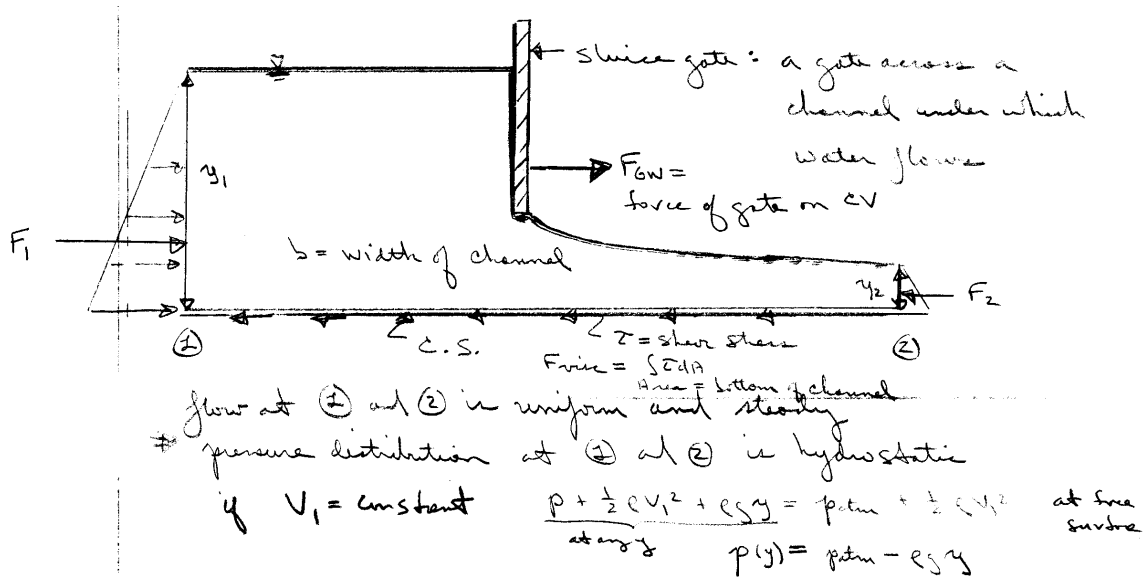 sluice gate : a gate across a
channel under which
water flows
F_GW =
force of gate on CV
y₁
F₁
b = width of channel
y₂
F₂
①
C.S.
τ = shear stress
②
Fvisc = ∫τdA
Area = bottom of channel
flow at ① and ② is uniform and steady
⇒ pressure distribution at ① and ② is hydrostatic
if V₁ = constant p + ½ ρV₁² + ρgy = patm + ½ ρV₁² at free
surface
at any y
p(y) = patm - ρgy